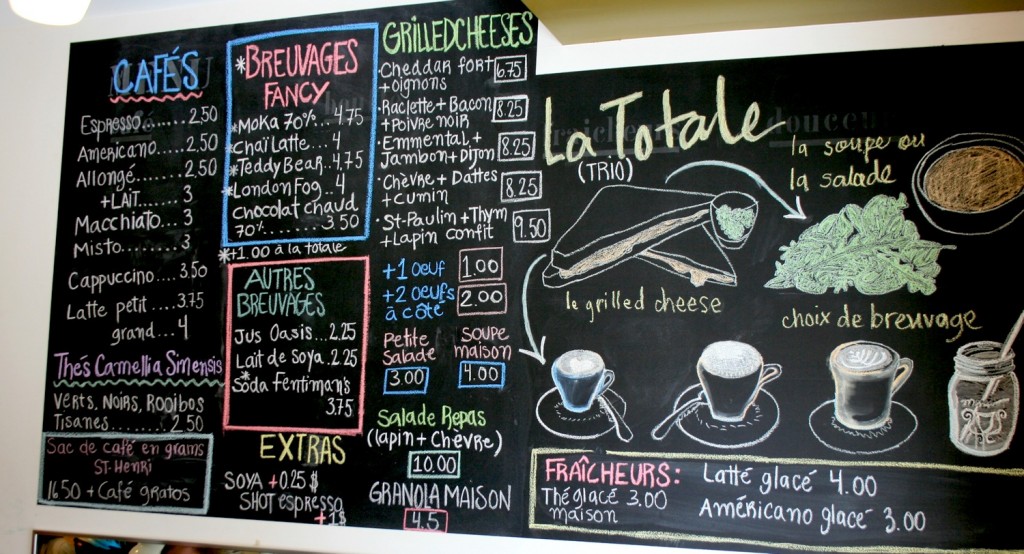 CAFÉS
Espresso......2,50
Americano.....2,50
Allongé.......2,50
+LAIT..... 3
Macchiato..... 3
Misto........ 3
Cappuccino....3,50
Latte petit....3,75
grand...4
Thés Camellia Sinensis
VERTS, NOIRS, ROOIBOS
TISANES....... 2,50
Sac de café en grains
ST-HENRI
16.50 + Café gratos
*BREUVAGES
FANCY
*Moka 70%...4,75
*Chaï Latte... 4
*Teddy Bear.4,75
*London Fog..4
Chocolat chaud
70%....... 3.50
*+1.00 à la totale
AUTRES
BREUVAGES
Jus Oasis...2.25
Lait de Soya..2.25
*Soda Fentiman's
3.75
EXTRAS
SOYA +0.25 $
SHOT espresso
+1$
GRILLEDCHEESES
·Cheddar fort 6.75
+oignons
·Raclette + Bacon 8.25
+Poivre noir
·Emmental + 8.25
Jambon+Dijon
·Chèvre + Dattes 8.25
+cumin
·St-Paulin + Thym 9.50
+Lapin confit
+1 oeuf 1.00
+2 oeufs 2.00
à côté
Petite Salade 3.00
SOUPE maison 4.00
Salade Repas
(lapin + Chèvre)
10.00
GRANOLA MAISON
4.5
La Totale
(TRIO)
la soupe ou
la salade
le grilled cheese
choix de breuvage
FRAÎCHEURS:
Thé glacé 3.00
maison
Latté glacé 4.00
Américano glacé 3.00